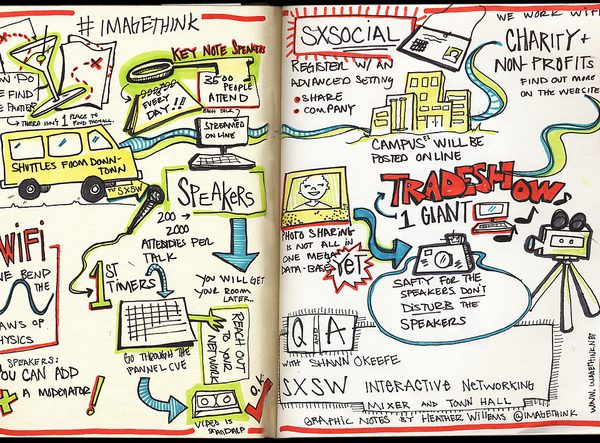 #IMAGETHINK
KEY NOTE SPEAKERS
EVERY
DAY!!!
3500
PEOPLE
ATTEND
EACH TALK
DO
FIND
THERE ISN'T 1 PLACE TO
FIND THEM ALL
STREAMED
ONLINE
SHUTTLES FROM DOWN-
TOWN
TO SXSW
SPEAKERS
200 →
2000
ATTENDIES PER
TALK
WIFI
BEND
THE
LAWS OF
PHYSICS
1ST
TIMERS
YOU WILL GET
YOUR ROOM
LATER..
GO THROUGH THE
PANNEL CUE
REACH OUT
TO YOUR
NETWORK
SPEAKERS:
YOU CAN ADD
A MODERATOR!
O.K.
VIDEO IS
STANDARD
SXSOCIAL
REGISTER W/ AN
ADVANCED SETTING
• SHARE
• COMPANY
WE WORK WITH
CHARITY +
NON-PROFITS
FIND OUT MORE
ON THE WEBSITE
CAMPUSES WILL BE
POSTED ONLINE
TRADESHOW
1 GIANT
PHOTO SHARING
IS NOT ALL IN
ONE MEGA
DATA-BASE
YET
SAFTY FOR THE
SPEAKERS DON'T
DISTURB THE
SPEAKERS
Q AND A
WITH SHAWN O'KEEFE
SXSW INTERACTIVE NETWORKING
MIXER AND TOWN HALL
GRAPHIC NOTES BY HEATHER WILLEMS @IMAGETHINK
WWW.IMAGETHINK.NET